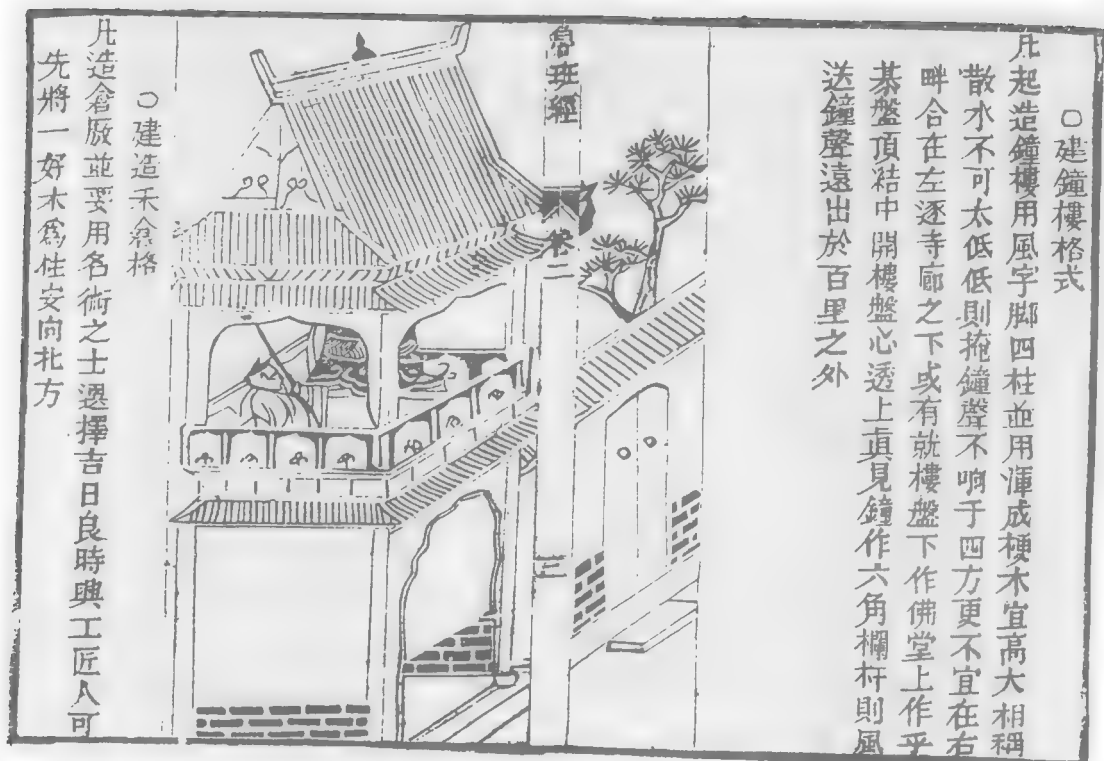 ○建鐘樓格式
凡起造鐘樓用風字脚四柱並用渾成梗木宜高大相稱
散水不可太低低則掩鐘聲不响于四方更不宜在右
畔合在左逐寺廊之下或有就樓盤下作佛堂上作平
棊盤頂結中開樓盤心透上真見鐘作六角欄杆則風
送鐘聲遠出於百里之外
魯班經
卷二
三
○建造禾倉格
凡造倉厫並要用名術之士選擇吉日良時興工匠人可
先將一好木爲柱安向北方